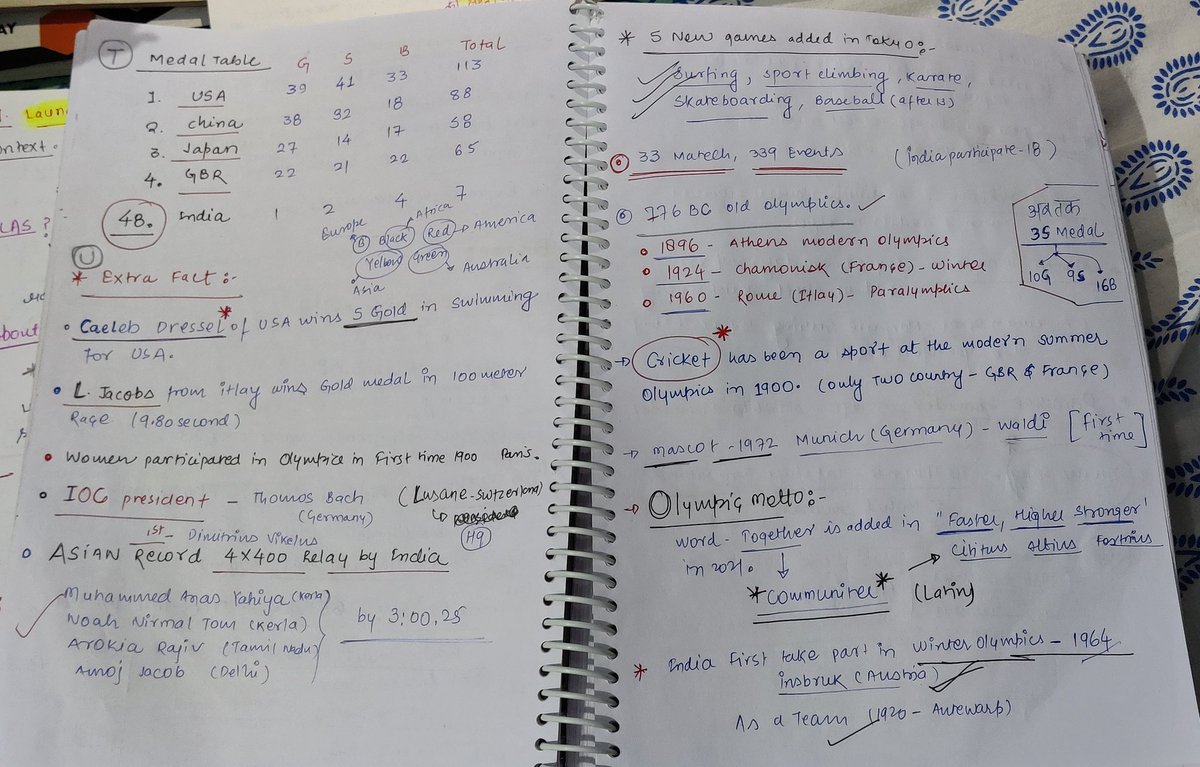 AY
Laun
ntext.
LAS ?
bout
T Medal Table G S B Total
1. USA 39 41 33 113
2. China 38 32 18 88
3. Japan 27 14 17 58
4. GBR 22 21 22 65
48. India 1 2 4 7
Europe Africa
B Black Red → America
Yellow Green
Asia Australia
U
* Extra Fact:-
• Caeleb Dressel* of USA wins 5 Gold in Swimming
For USA.
• L. Jacobs from itlay wins Gold medal in 100 meter
Race (9.80 second)
• Women participared in Olympics in First time 1900 Paris.
• IOC president - Thomos Bach (Lusane-swtzerland)
(Germany)
HQ
1st - Dimitrius Vikelus
• ASIAN Record 4x400 Relay by India
Muhammed Anas Yahiya (Kerla)
Noah Nirmal Tom (Kerla)
Arokia Rajiv (Tamil Nadu)
Amoj Jacob (Delhi)
by 3:00.25
* 5 New games added in Tokyo:-
Surfing, sport climbing, Karate,
Skateboarding, Baseball (after 13)
33 Match, 339 Events (India participate-18)
776 BC old olymptics.
• 1896 - Athens modern Olympics
• 1924 - Chamonisk (France) - Winter
• 1960 - Rome (Itlay) - Paralymptics
अब तक
35 Medal
10G 9S 16B
→ Cricket* has been a sport at the modern summer
Olympics in 1900. (only two country - GBR & France)
→ mascot - 1972 Munich (Germany) - waldi [First time]
→ Olympic motto:-
word - Together is added in "Faster, Higher Stronger"
in 2021. Citius Altius Fortius
*Communiter* (Latin)
* India First take part in Winter Olympics - 1964
insbruk (Austria)
As a Team (1920 - Antewarp)